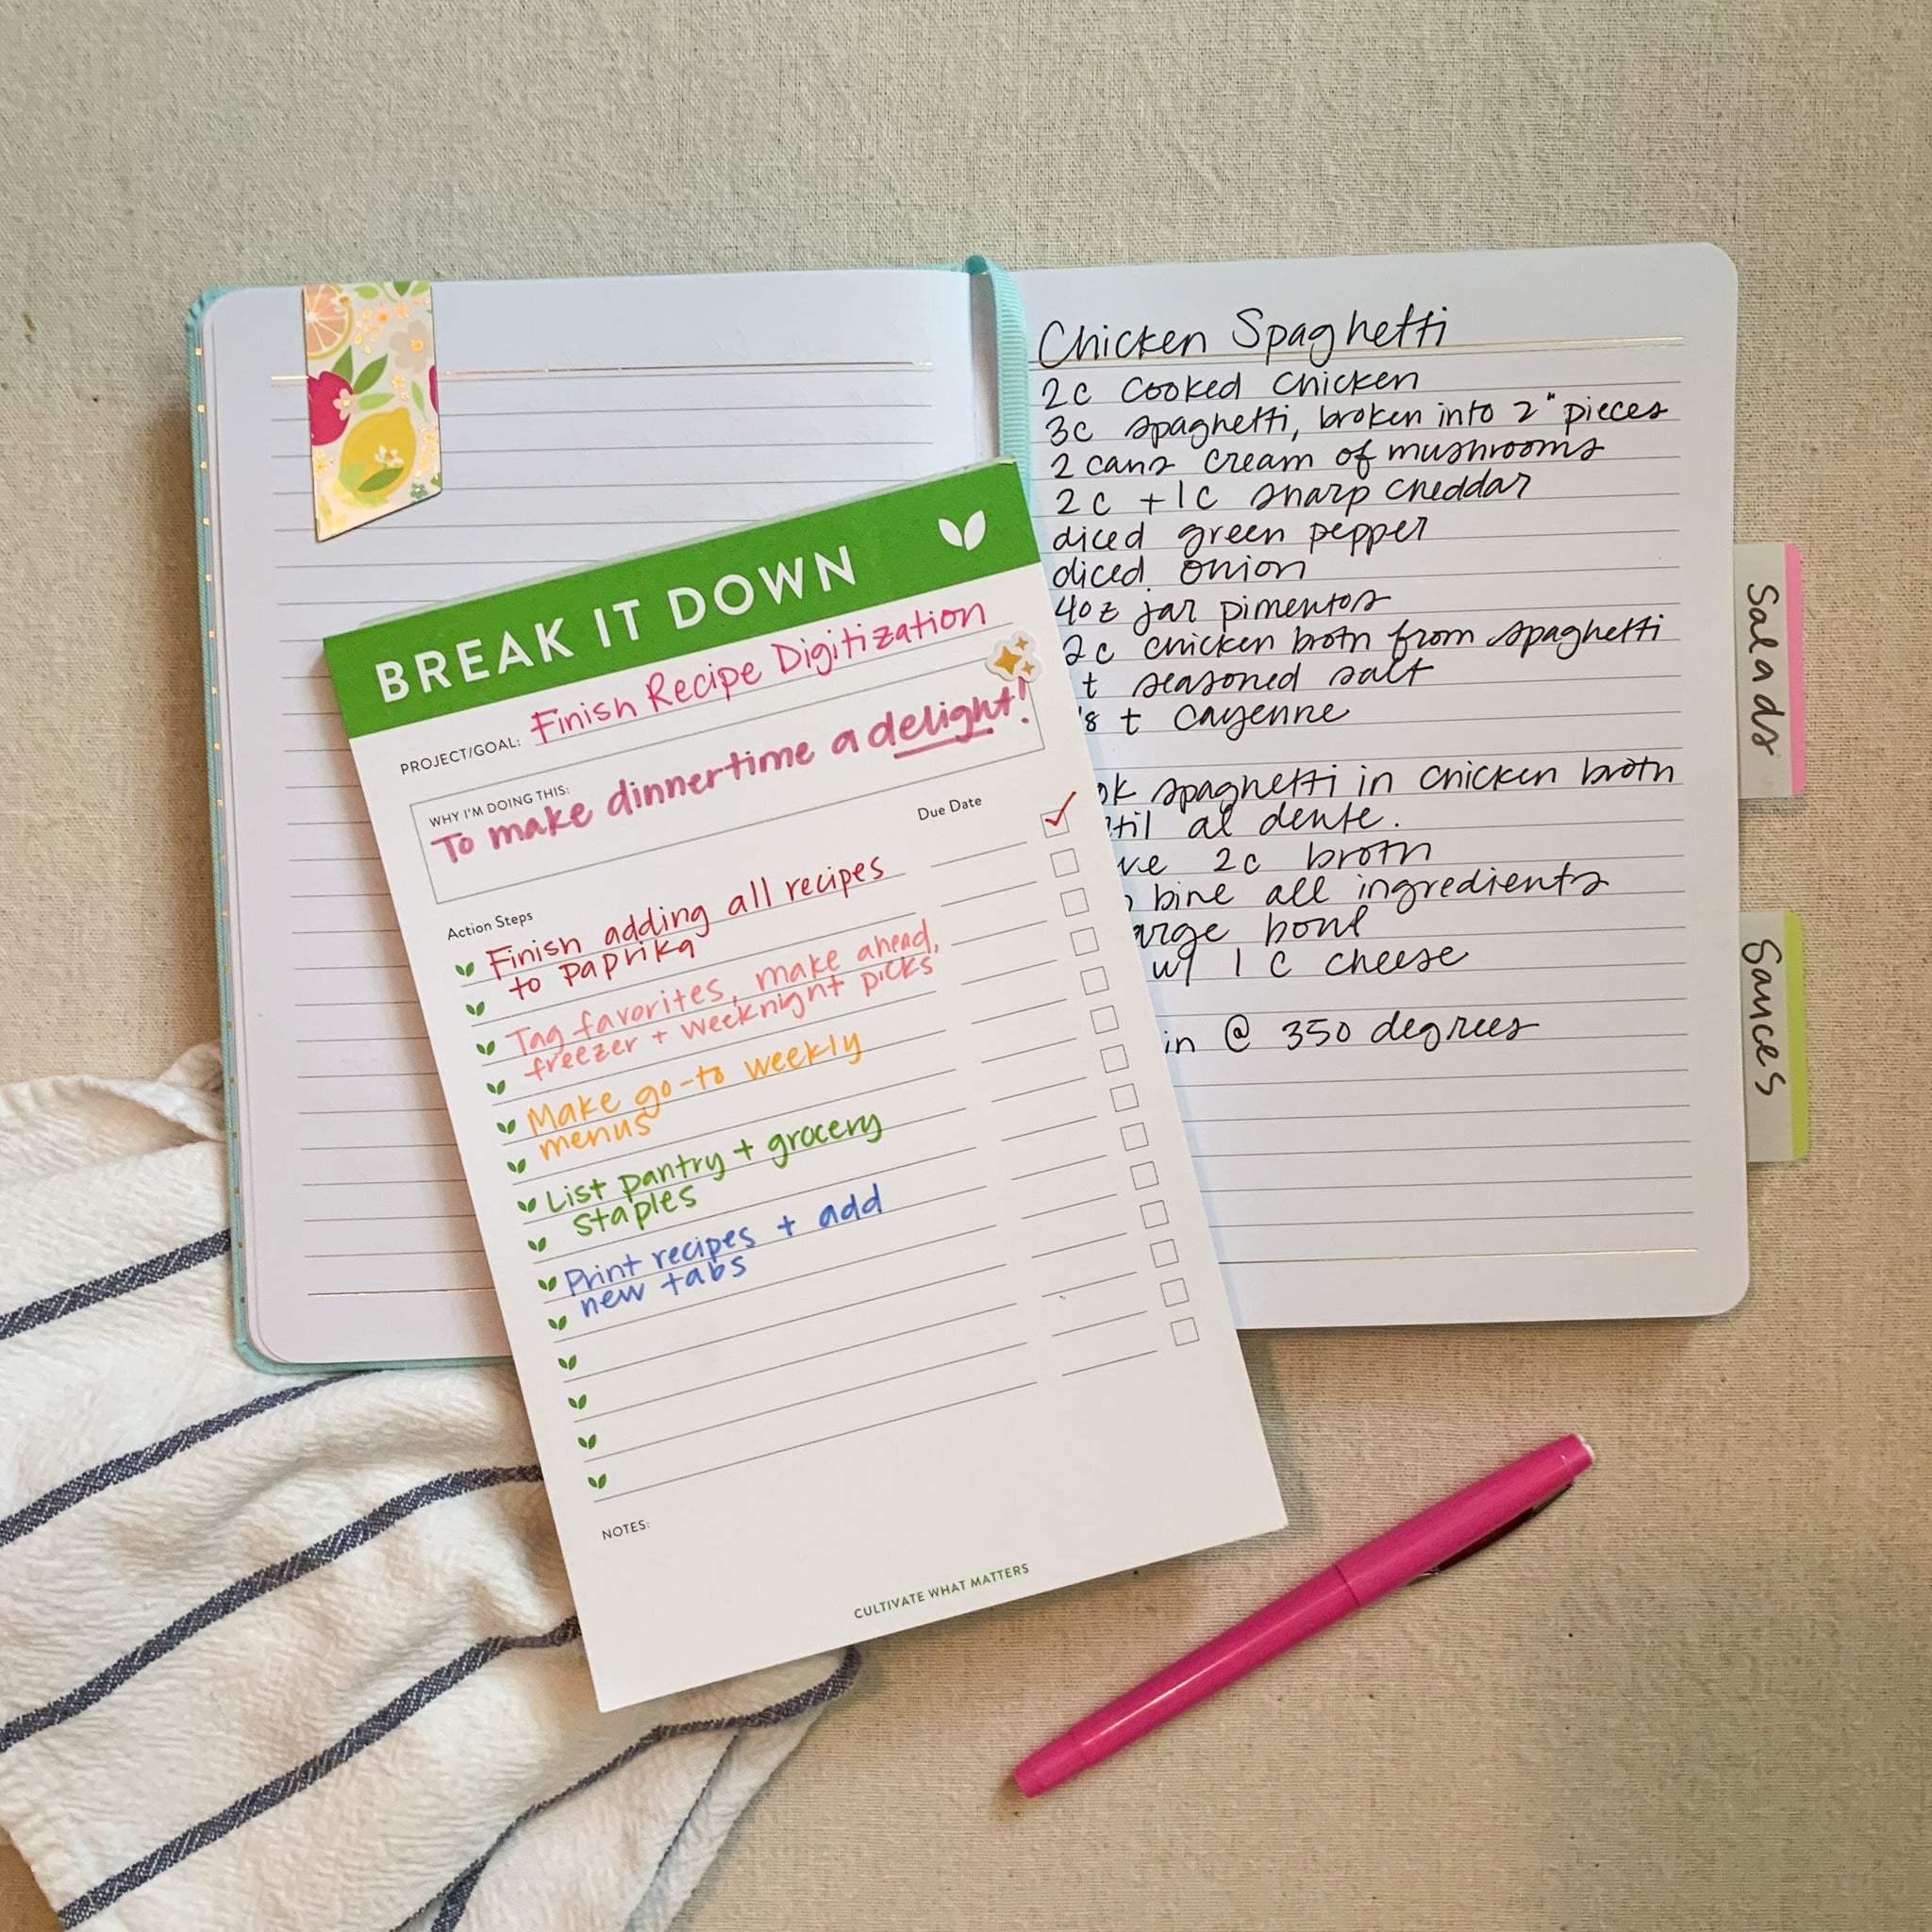 BREAK IT DOWN
PROJECT/GOAL: Finish Recipe Digitization
WHY I'M DOING THIS:
To make dinnertime a delight!
Action Steps
Due Date
Finish adding all recipes
to paprika
Tag favorites, make ahead,
freezer + weeknight picks
Make go-to weekly
menus
List pantry + grocery
staples
Print recipes + add
new tabs
NOTES:
CULTIVATE WHAT MATTERS
Chicken Spaghetti
2c cooked chicken
3c spaghetti, broken into 2" pieces
2 cans cream of mushrooms
2 c + 1 c sharp cheddar
diced green pepper
diced onion
4oz jar pimentos
2c chicken broth from spaghetti
t seasoned salt
t cayenne
spaghetti in chicken broth
al dente.
2c broth
all ingredients
bowl
w/ 1 c cheese
@ 350 degrees
Salads
Sauces